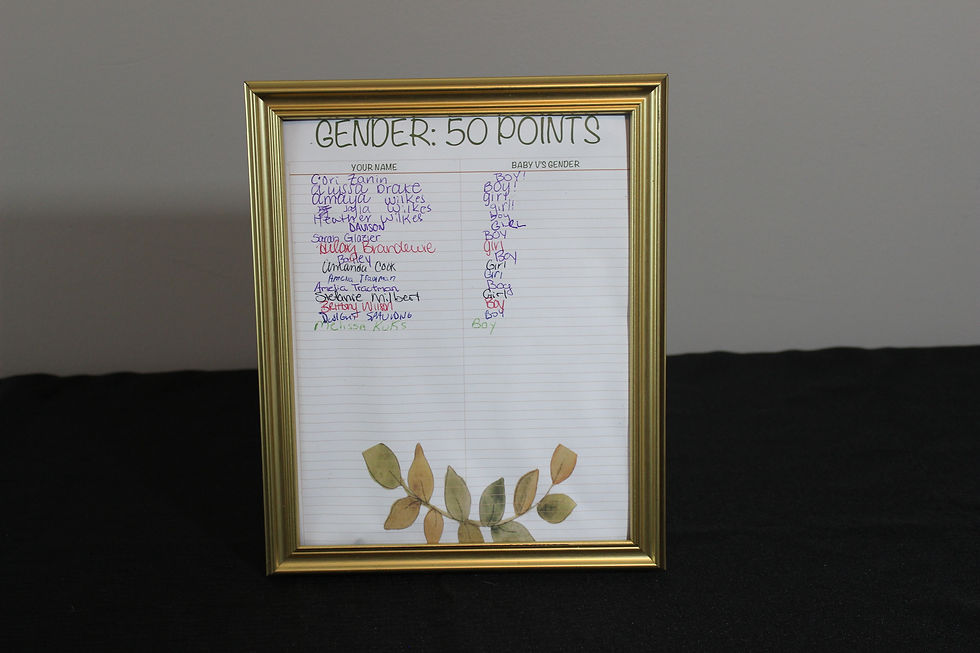 GENDER: 50 POINTS
YOUR NAME BABY V'S GENDER
Cori Zanin BOY!
Alyssa Drake BOY!
Amaya Wilkes girl
Jayla Wilkes girl!
Heather Wilkes Boy
DAVISON GIRL
Sarah Glazier BOY
Hilary Brandewie girl
Bailey Boy
Amanda Cook Girl
Amelia Trautman Girl
Amelia Trautman Boy
Stefanie Milbert Girl
Brittany Wilson Boy
DWIGHT Boy
Melissa Kuks Boy